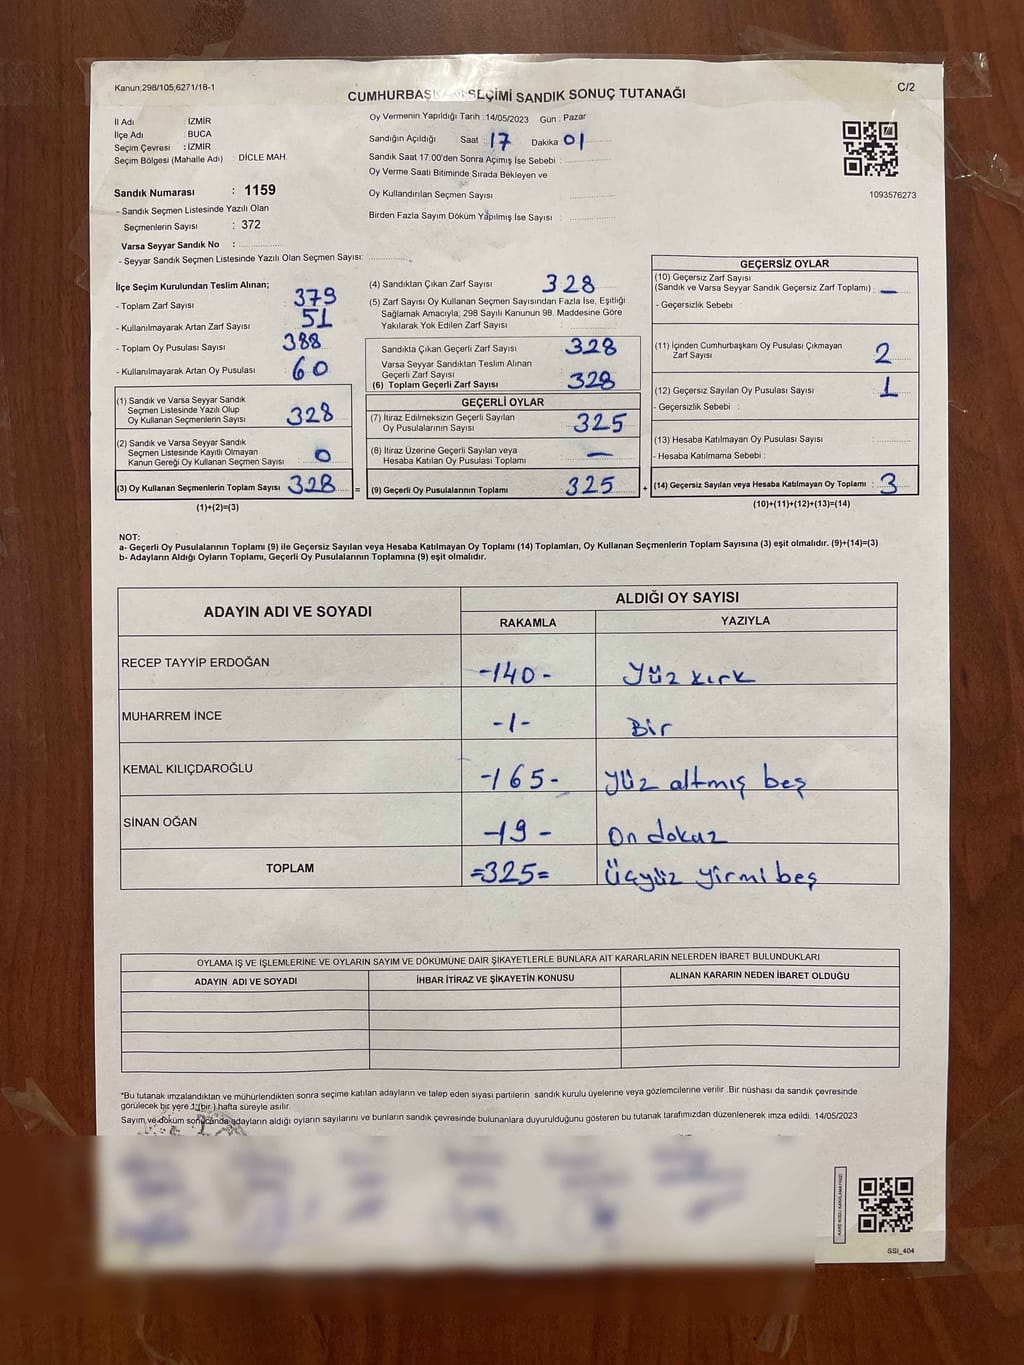 Kanun;298/105;6271/18-1
C/2
CUMHURBAŞKANI SEÇİMİ SANDIK SONUÇ TUTANAĞI
İl Adı : İZMİR
İlçe Adı : BUCA
Seçim Çevresi : İZMİR
Seçim Bölgesi (Mahalle Adı) : DİCLE MAH.
Sandık Numarası : 1159
- Sandık Seçmen Listesinde Yazılı Olan
Seçmenlerin Sayısı : 372
Varsa Seyyar Sandık No :
- Seyyar Sandık Seçmen Listesinde Yazılı Olan Seçmen Sayısı:
Oy Vermenin Yapıldığı Tarih :14/05/2023 Gün : Pazar
Sandığın Açıldığı Saat 17 Dakika 01
Sandık Saat 17:00'den Sonra Açımış İse Sebebi :
Oy Verme Saati Bitiminde Sırada Bekleyen ve
Oy Kullandırılan Seçmen Sayısı
Birden Fazla Sayım Döküm Yapılmış İse Sayısı :
1093576273
İlçe Seçim Kurulundan Teslim Alınan;
- Toplam Zarf Sayısı : 379
- Kullanılmayarak Artan Zarf Sayısı : 51
- Toplam Oy Pusulası Sayısı : 388
- Kullanılmayarak Artan Oy Pusulası : 60
(1) Sandık ve Varsa Seyyar Sandık
Seçmen Listesinde Yazılı Olup
Oy Kullanan Seçmenlerin Sayısı : 328
(2) Sandık ve Varsa Seyyar Sandık
Seçmen Listesinde Kayıtlı Olmayan
Kanun Gereği Oy Kullanan Seçmen Sayısı : 0
(3) Oy Kullanan Seçmenlerin Toplam Sayısı : 328
(1)+(2)=(3)
(4) Sandıktan Çıkan Zarf Sayısı : 328
(5) Zarf Sayısı Oy Kullanan Seçmen Sayısından Fazla İse, Eşitliği
Sağlamak Amacıyla, 298 Sayılı Kanunun 98. Maddesine Göre
Yakılarak Yok Edilen Zarf Sayısı :
Sandıkta Çıkan Geçerli Zarf Sayısı : 328
Varsa Seyyar Sandıktan Teslim Alınan
Geçerli Zarf Sayısı :
(6) Toplam Geçerli Zarf Sayısı : 328
GEÇERLİ OYLAR
(7) İtiraz Edilmeksizin Geçerli Sayılan
Oy Pusulalarının Sayısı : 325
(8) İtiraz Üzerine Geçerli Sayılan veya
Hesaba Katılan Oy Pusulası Toplamı : —
= (9) Geçerli Oy Pusulalarının Toplamı : 325
GEÇERSİZ OYLAR
(10) Geçersiz Zarf Sayısı
(Sandık ve Varsa Seyyar Sandık Geçersiz Zarf Toplamı) : —
- Geçersizlik Sebebi
(11) İçinden Cumhurbaşkanı Oy Pusulası Çıkmayan
Zarf Sayısı : 2
(12) Geçersiz Sayılan Oy Pusulası Sayısı : 1
- Geçersizlik Sebebi :
(13) Hesaba Katılmayan Oy Pusulası Sayısı :
- Hesaba Katılmama Sebebi :
+ (14) Geçersiz Sayılan veya Hesaba Katılmayan Oy Toplamı : 3
(10)+(11)+(12)+(13)=(14)
NOT:
a- Geçerli Oy Pusulalarının Toplamı (9) ile Geçersiz Sayılan veya Hesaba Katılmayan Oy Toplamı (14) Toplamları, Oy Kullanan Seçmenlerin Toplam Sayısına (3) eşit olmalıdır. (9)+(14)=(3)
b- Adayların Aldığı Oyların Toplamı, Geçerli Oy Pusulalarının Toplamına (9) eşit olmalıdır.
ADAYIN ADI VE SOYADI ALDIĞI OY SAYISI
RAKAMLA YAZIYLA
RECEP TAYYİP ERDOĞAN -140- Yüz kırk
MUHARREM İNCE -1- Bir
KEMAL KILIÇDAROĞLU -165- Yüz altmış beş
SİNAN OĞAN -19- On dokuz
TOPLAM =325= Üçyüz yirmi beş
OYLAMA İŞ VE İŞLEMLERİNE VE OYLARIN SAYIM VE DÖKÜMÜNE DAİR ŞİKAYETLERLE BUNLARA AİT KARARLARIN NELERDEN İBARET BULUNDUKLARI
ADAYIN ADI VE SOYADI İHBAR İTİRAZ VE ŞİKAYETİN KONUSU ALINAN KARARIN NEDEN İBARET OLDUĞU
*Bu tutanak imzalandıktan ve mühürlendikten sonra seçime katılan adayların ve talep eden siyasi partilerin sandık kurulu üyelerine veya gözlemcilerine verilir .Bir nüshası da sandık çevresinde
görülecek bir yere 1 (bir ) hafta süreyle asılır.
Sayım ve döküm sonucanda adayların aldığı oyların sayılarını ve bunların sandık çevresinde bulunanlara duyurulduğunu gösteren bu tutanak tarafımızdan düzenlenerek imza edildi. 14/05/2023
SSI_404